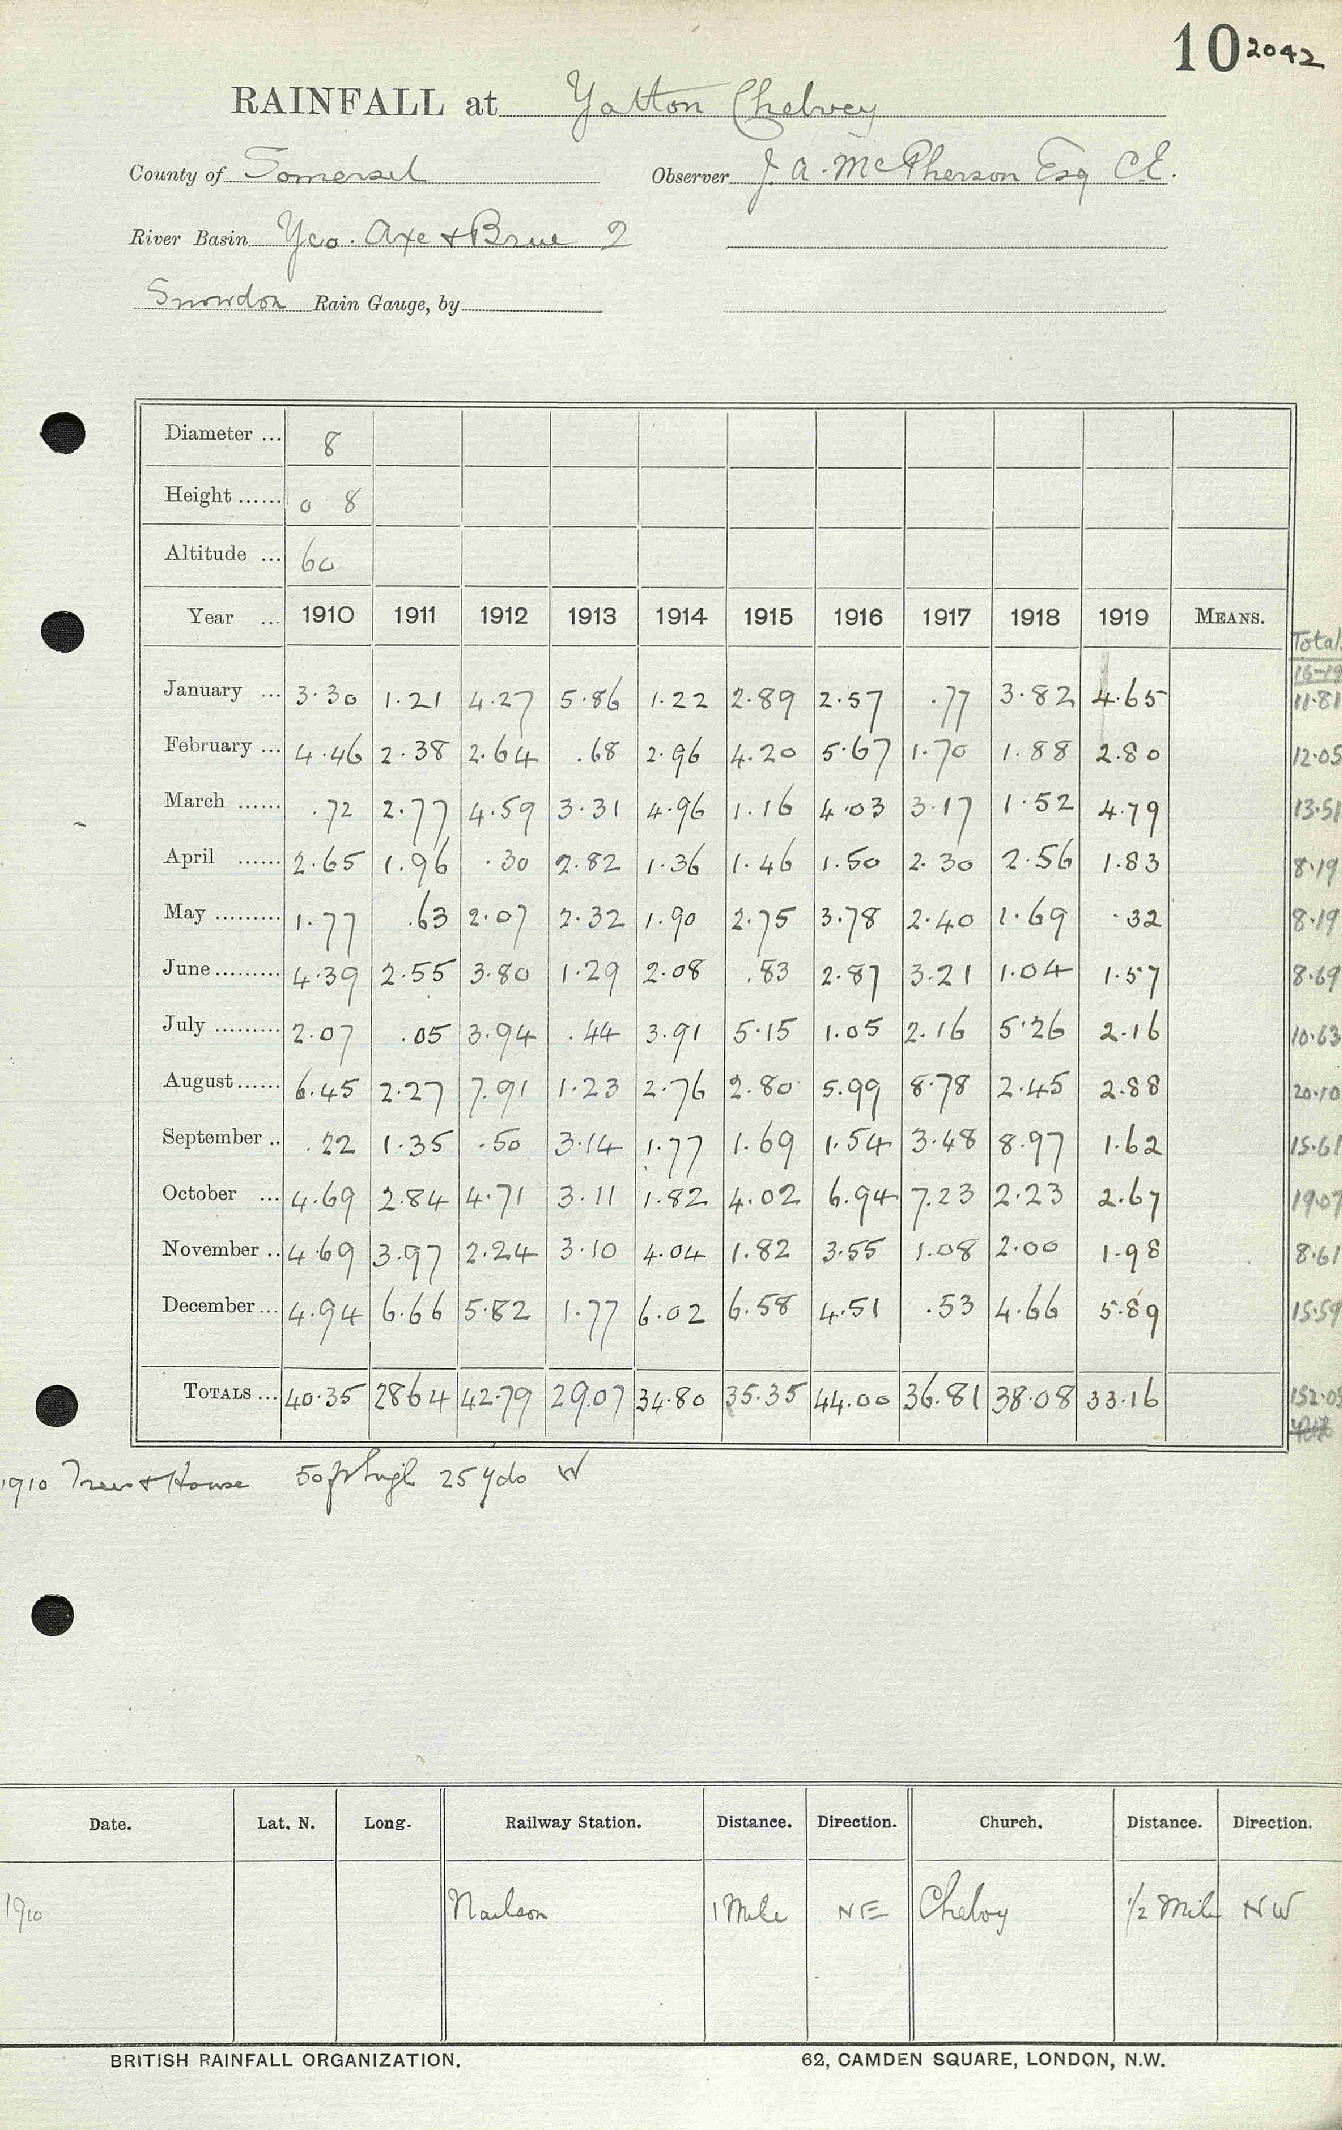 10 2042
RAINFALL at Yatton Chelvey
County of Somerset Observer J. A. McPherson Esq C.E.
River Basin Yeo. Axe + Brue 2
Snowdon Rain Gauge, by
Diameter ... 8
Height ...... 0 8
Altitude ... 60
Year ... 1910 1911 1912 1913 1914 1915 1916 1917 1918 1919 MEANS. Total 16-19
January ... 3.30 1.21 4.27 5.86 1.22 2.89 2.57 .77 3.82 4.65 11.81
February ... 4.46 2.38 2.64 .68 2.96 4.20 5.67 1.70 1.88 2.80 12.05
March ...... .72 2.77 4.59 3.31 4.96 1.16 4.03 3.17 1.52 4.79 13.51
April ...... 2.65 1.96 .30 2.82 1.36 1.46 1.50 2.30 2.56 1.83 8.19
May ......... 1.77 .63 2.07 2.32 1.90 2.75 3.78 2.40 1.69 .32 8.19
June ......... 4.39 2.55 3.80 1.29 2.08 .83 2.87 3.21 1.04 1.57 8.69
July ......... 2.07 .05 3.94 .44 3.91 5.15 1.05 2.16 5.26 2.16 10.63
August ...... 6.45 2.27 7.91 1.23 2.76 2.80 5.99 8.78 2.45 2.88 20.10
September .. .22 1.35 .50 3.14 1.77 1.69 1.54 3.48 8.97 1.62 15.61
October ... 4.69 2.84 4.71 3.11 1.82 4.02 6.94 7.23 2.23 2.67 19.07
November .. 4.69 3.97 2.24 3.10 4.04 1.82 3.55 1.08 2.00 1.98 8.61
December ... 4.94 6.66 5.82 1.77 6.02 6.58 4.51 .53 4.66 5.89 15.59
TOTALS ... 40.35 2864 42.79 29.07 34.80 35.35 44.00 36.81 38.08 33.16 152.05
1910 Trees + House 50ft high 25 yds W
Date. Lat. N. Long. Railway Station. Distance. Direction. Church. Distance. Direction.
1910 Nailsea 1 Mile NE Chelvy 1/2 Mile NW
BRITISH RAINFALL ORGANIZATION. 62, CAMDEN SQUARE, LONDON, N.W.